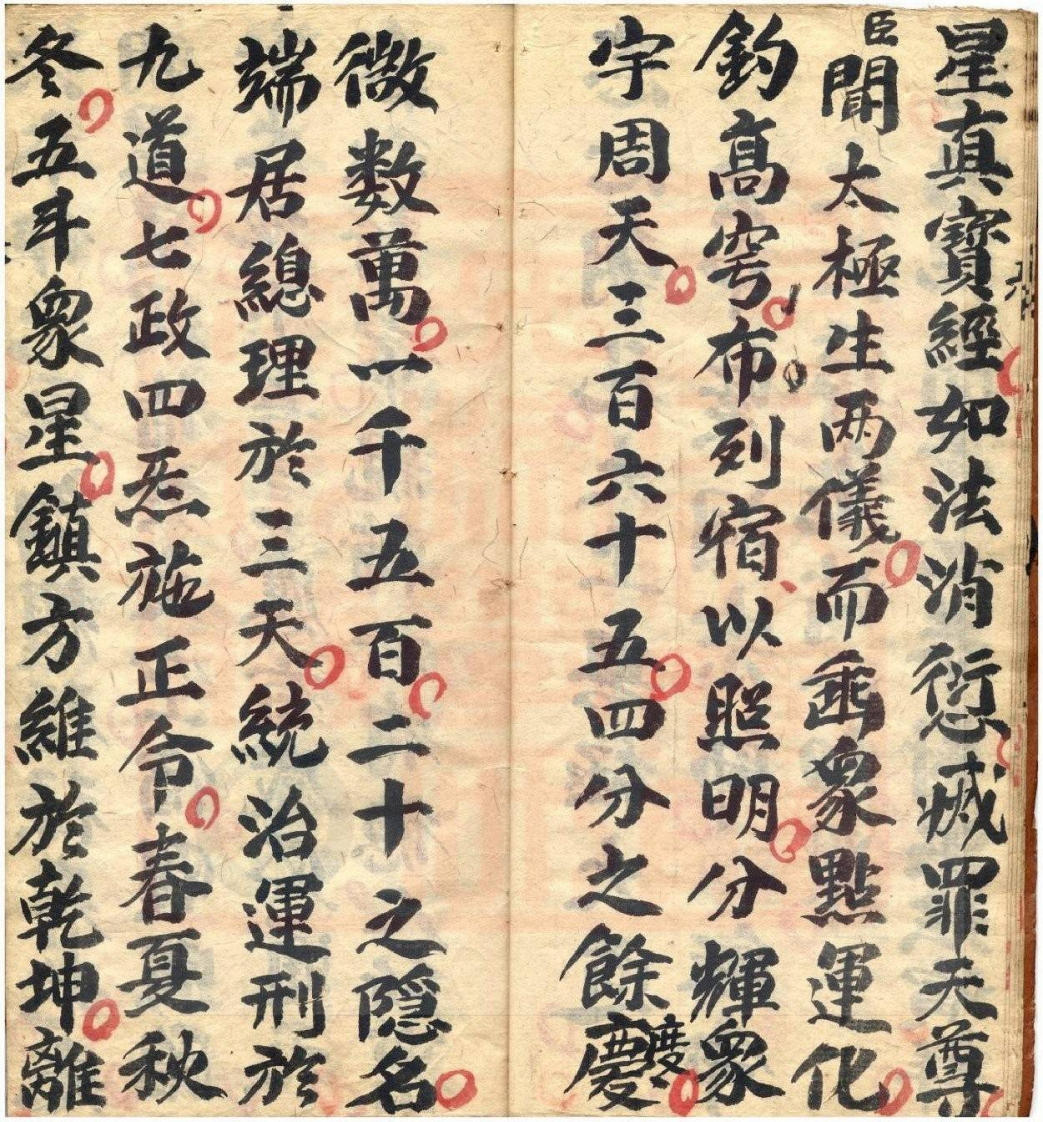 星真寶經如法消愆滅罪天尊
臣聞太極生两儀而垂象點運化
鈞高穹布列宿以照明分輝象
宇周天三百六十五四分之餘慶度
微数萬一千五百二十之隐名
端居總理於三天統治運刑於
九道七政四炁施正令春夏秋
冬五斗眾星鎮方維於乾坤離